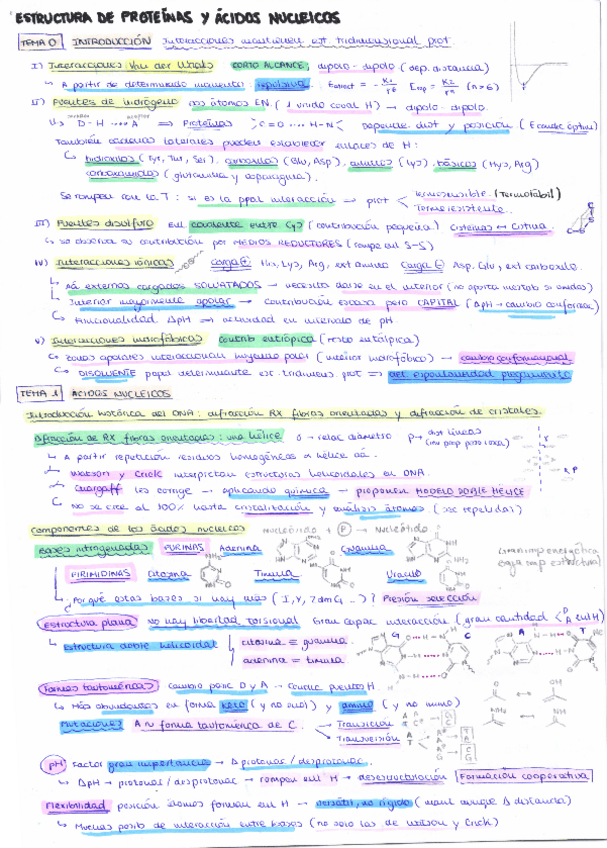 ESTRUCTURA DE PROTEÍNAS Y ÁCIDOS NUCLEICOS
TEMA 0 INTRODUCCIÓN Interacciones mantienen est. tridimensional prot
I) Interacciones Van der Waals CORTO ALCANCE, dipolo-dipolo (dep. distancia)
A partir de determinado momento: repulsiva.
II) Puentes de hidrógeno dos átomos EN. (1 unido coval H) → dipolo-dipolo.
D-H ... A ⇒ Proteínas C=O ... H-N Depende dist y posición
También cadenas laterales pueden establecer enlaces de H:
hidroxilos (Tyr, Thr, Ser), carboxilos (Glu, Asp), aminos (Lys), básicos (Hys, Arg)
carboxamidas (glutamina y asparagina).
Se rompen con la T: si es la ppal interacción → prot termosensible (Termolábil)
Termorresistente.
III) Puentes disulfuro enl covalente entre Cys (contribución pequeña) cisteínas ↔ cistina.
se observa su contribución por MEDIOS REDUCTORES (rompe enl S-S)
IV) Interacciones iónicas carga ⊕ His, Lys, Arg, ext amino Carga ⊖ Asp, Glu, ext carboxilo.
Aá externos cargados SOLVATADOS → necesita en el interior (no aporta si enlaces)
Interior mayormente apolar → contribución escasa pero CAPITAL (ΔpH → cambio conformac)
Funcionalidad ΔpH → actividad en intervalo de pH.
V) Interacciones hidrofóbicas contrib entrópica (resto entálpica)
Zonas apolares interaccionan huyendo polar (interior hidrofóbico) → cambio conformacional
DISOLVENTE papel determinante est. tridimens prot ⇒ del espontaneidad plegamiento
TEMA 1 ÁCIDOS NUCLEICOS
Introducción histórica del DNA: difracción RX fibras orientadas y difracción de cristales.
Difracción de RX fibras orientadas: una hélice θ → relac diámetro P → dist líneas
A partir repetición residuos homogéneos α hélice aá.
Watson y Crick interpretan estructuras helicoidales en DNA.
Chargaff les corrige → aplicando química → proponen MODELO DOBLE HÉLICE
No se cree al 100% hasta cristalización y análisis átomos (sec repetidas)
Componentes de los ácidos nucleicos Nucleósido + P → Nucleótido
Bases nitrogenadas PURINAS Adenina Guanina
PIRIMIDINAS Citosina Timina Uracilo
Gran imp energética
baja imp estructural
¿Por qué estas bases si hay más (I, X, 7dmG ...)? Presión selección
Estructura plana no hay libertad torsional Gran capac interacción (gran cantidad D A enl H)
Estructura doble helicoidal citosina ≡ guanina.
adenina = timina
G C A T
Formas tautoméricas cambio patrc D y A → cambia puentes H.
Más abundantes en forma keto (y no enol) y amino (y no imino)
Mutaciones A ~ forma tautomérica de C. → Transición
→ Transversión
pH Factor gran importancia → Δ protonac / desprotonac.
ΔpH → protonac / desprotonac → rompen enl H → desestructuración Formación cooperativa
Flexibilidad posición átomos forman enl H → versátil, no rígido (mant aunque Δ distancia)
Muchas posib de interacción entre bases (no solo las de Watson y Crick)